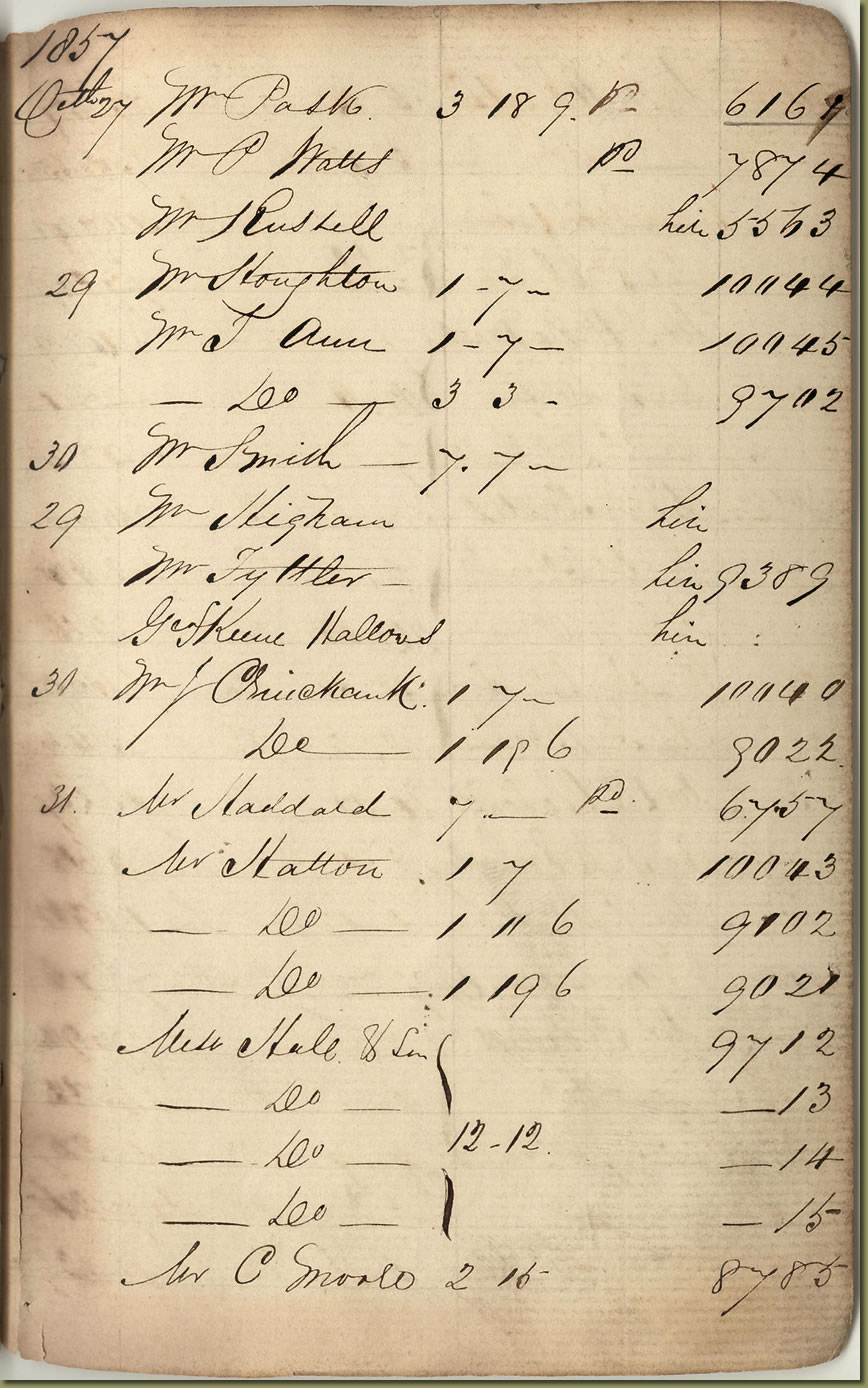 1857
Octr 27 Mr Pask. 3 18 9. Pd 6164
Mr P Watts Pd 7874
Mr Russell hire 5563
29 Mr Houghton 1 - 7 - 10044
Mr J Ann 1 - 7 - 10045
— Do — 3 3 - 9702
30 Mr Smith — 7. 7 -
29 Mr Higham hire
Mr Tyttler - hire 9389
Geo Keene Hallows hire
30 Mr J Cruickank. 1 7 - 10040
Do — 1 19 6 9022.
31. Mr Haddard 7 . — Pd. 6757
Mr Hatton 1 7 10043
— Do — 1 11 6 9102
— Do — 1 19 6 9021
Mess Hale & Son 9712
— Do — — 13
— Do — 12 - 12. — 14
— Do — — 15
Mr C Moore 2 15 8785